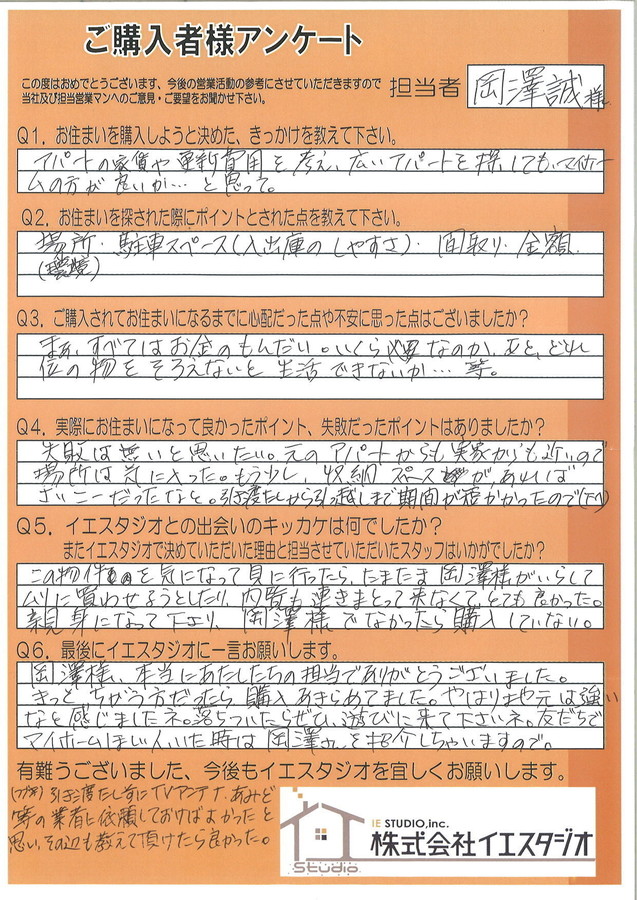 ご購入者様アンケート
この度はおめでとうございます、今後の営業活動の参考にさせていただきますので
当社及び担当営業マンへのご意見・ご要望をお聞かせ下さい。
担当者 岡澤誠様
Q1. お住まいを購入しようと決めた、きっかけを教えて下さい。
アパートの家賃や更新費用を考え、広いアパートを探してもマイホー
ムの方が良いか…と思って。
Q2. お住まいを探された際にポイントとされた点を教えて下さい。
場所・駐車スペース(入出庫のしやすさ)・間取り・金額
(環境)
Q3. ご購入されてお住まいになるまでに心配だった点や不安に思った点はございましたか?
まぁ、すべてはお金のもんだい。いくら必要なのか、あと、どれ
位の物をそろえないと生活できないか…等。
Q4. 実際にお住まいになって良かったポイント、失敗だったポイントはありましたか?
失敗は無いと思いたい。元のアパートからも実家からも近いので
場所は気に入った。もう少し、収納スペースがあれば
さいこーだったなと。引き渡しから引っ越しまで期間が短かかったので(下へ)
Q5. イエスタジオとの出会いのキッカケは何でしたか?
またイエスタジオで決めていただいた理由と担当させていただいたスタッフはいかがでしたか?
この物件を気になって見に行ったら、たまたま岡澤様がいらして
ムリに買わせようとしたり、内覧も連きまとって来なくて、とても良かった。
親身になって下さり、岡澤様でなかったら購入していない。
Q6. 最後にイエスタジオに一言お願いします。
岡澤様、本当にあたしたちの担当でありがとうございました。
きっとちがう方だったら購入あきらめてました。やはり地元は強い
なと感じましたネ。落ちついたらぜひ、遊びに来て下さいネ。友だちで
マイホームほしい人いた時は岡澤さんを紹介しちゃいますので。
有難うございました、今後もイエスタジオを宜しくお願いします。
(つづき)引き渡たし前にTVアンテナ、あみど
等の業者に依頼しておけばよかったと
思い、その辺も教えて頂けたら良かった。
IE STUDIO,inc.
株式会社イエスタジオ
Studio